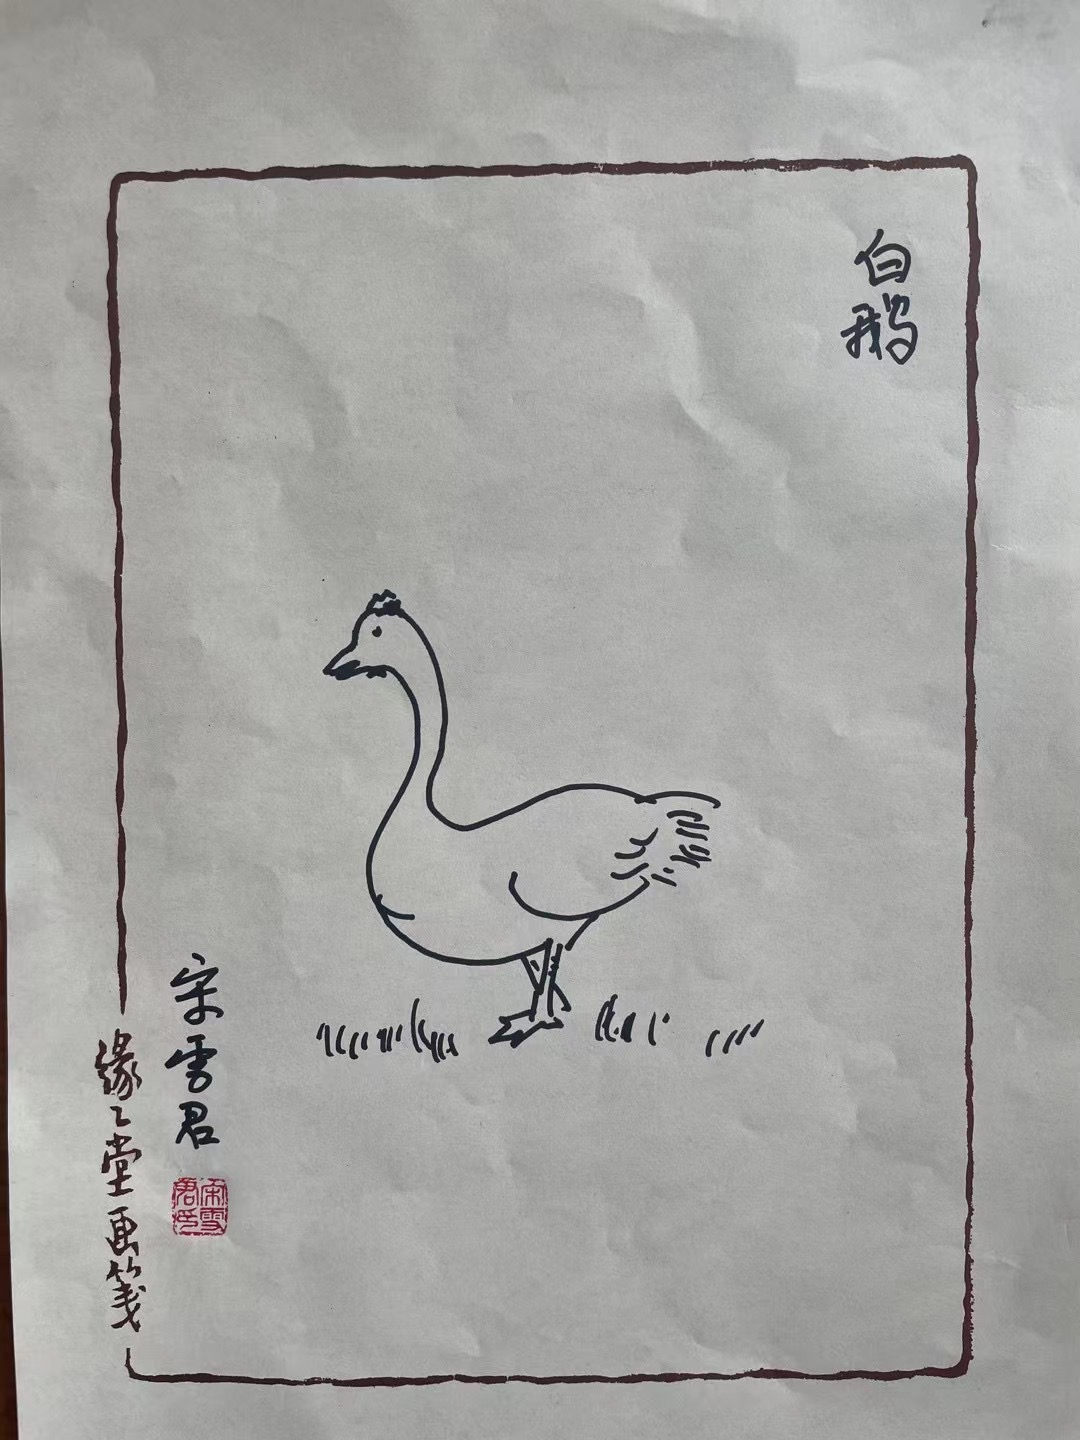 白鹅
宋雪君
宋雪君印
缘缘堂画笺